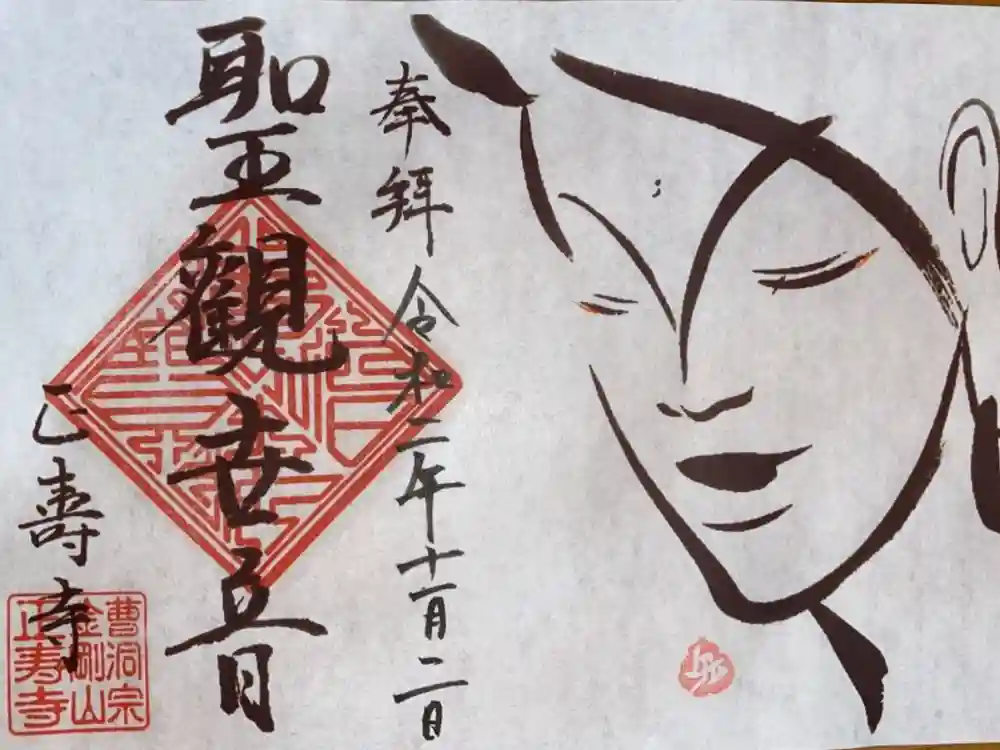 奉拝 令和二年十一月二日
聖観世音
正壽寺
曹洞宗
金剛山
正寿寺